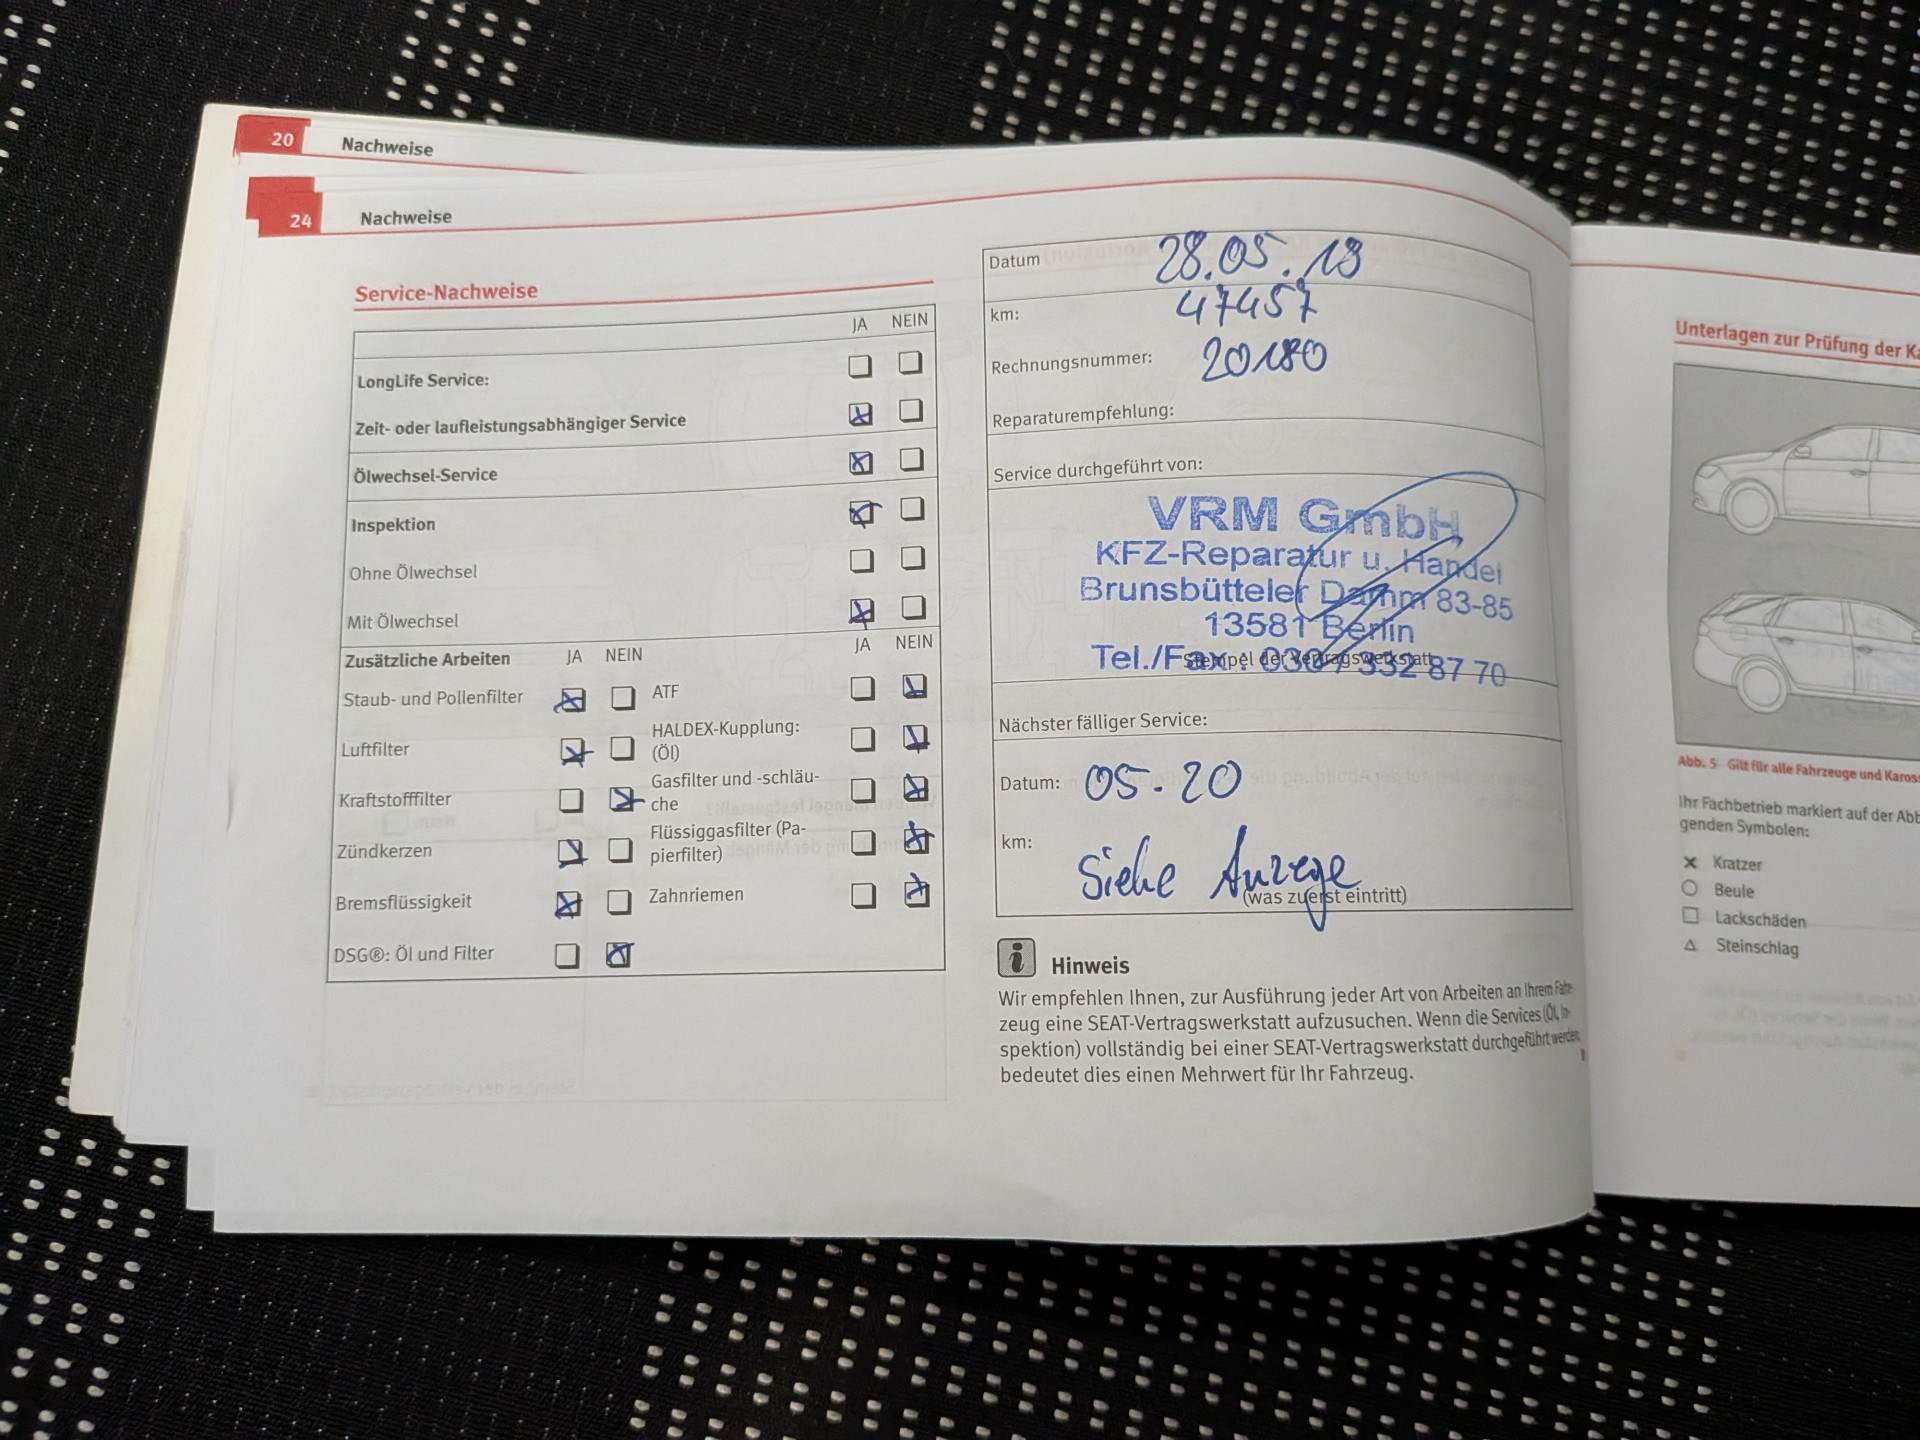 20 Nachweise
24 Nachweise
Service-Nachweise
JA NEIN
LongLife Service:
Zeit- oder laufleistungsabhängiger Service
Ölwechsel-Service
Inspektion
Ohne Ölwechsel
Mit Ölwechsel
Zusätzliche Arbeiten JA NEIN JA NEIN
Staub- und Pollenfilter ATF
Luftfilter HALDEX-Kupplung:
(Öl)
Kraftstofffilter Gasfilter und -schläu-
che
Zündkerzen Flüssiggasfilter (Pa-
pierfilter)
Bremsflüssigkeit Zahnriemen
DSG®: Öl und Filter
Datum 28.05.19
km: 47457
Rechnungsnummer: 20180
Reparaturempfehlung:
Service durchgeführt von:
VRM GmbH
KFZ-Reparatur u. Handel
Brunsbütteler Damm 83-85
13581 Berlin
Tel./Fax.: 030 / 332 87 70
Stempel der Vertragswerkstatt
Nächster fälliger Service:
Datum: 05.20
km: Siehe Anzege
(was zuerst eintritt)
i Hinweis
Wir empfehlen Ihnen, zur Ausführung jeder Art von Arbeiten an Ihrem Fahr-
zeug eine SEAT-Vertragswerkstatt aufzusuchen. Wenn die Services (Öl, In-
spektion) vollständig bei einer SEAT-Vertragswerkstatt durchgeführt werden,
bedeutet dies einen Mehrwert für Ihr Fahrzeug.
Unterlagen zur Prüfung der Ka
Abb. 5 Gilt für alle Fahrzeuge und Kaross
Ihr Fachbetrieb markiert auf der Abb
genden Symbolen:
Kratzer
Beule
Lackschäden
Steinschlag